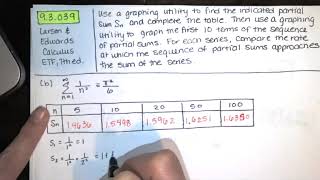 9.3.039
Larson &
Edwards
Calculus
ETF, 7th ed.
Use a graphing utility to find the indicated partial
sum Sₙ and complete the table. Then use a graphing
utility to graph the first 10 terms of the sequence
of partial sums. For each series, compare the rate
at which the sequence of partial sums approaches
the sum of the series.
(b) ∞ Σ n=1 1/n² = π²/6
n 5 10 20 50 100
Sₙ 1.4636 1.5498 1.5962 1.6251 1.6350
S₁ = 1/1² = 1
S₂ = 1/1² + 1/2² = 1 +